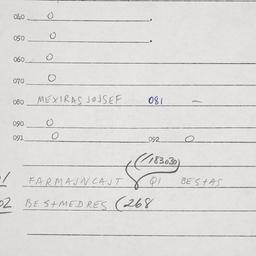 040 0
050 0
060 0
070 0
080 MEXIRAS JOJSEF 081 —
090 0
091 0 092 0
(183030)
FARMAJNCAJT Q1 BESTAS
02 BESTMEDRES (268